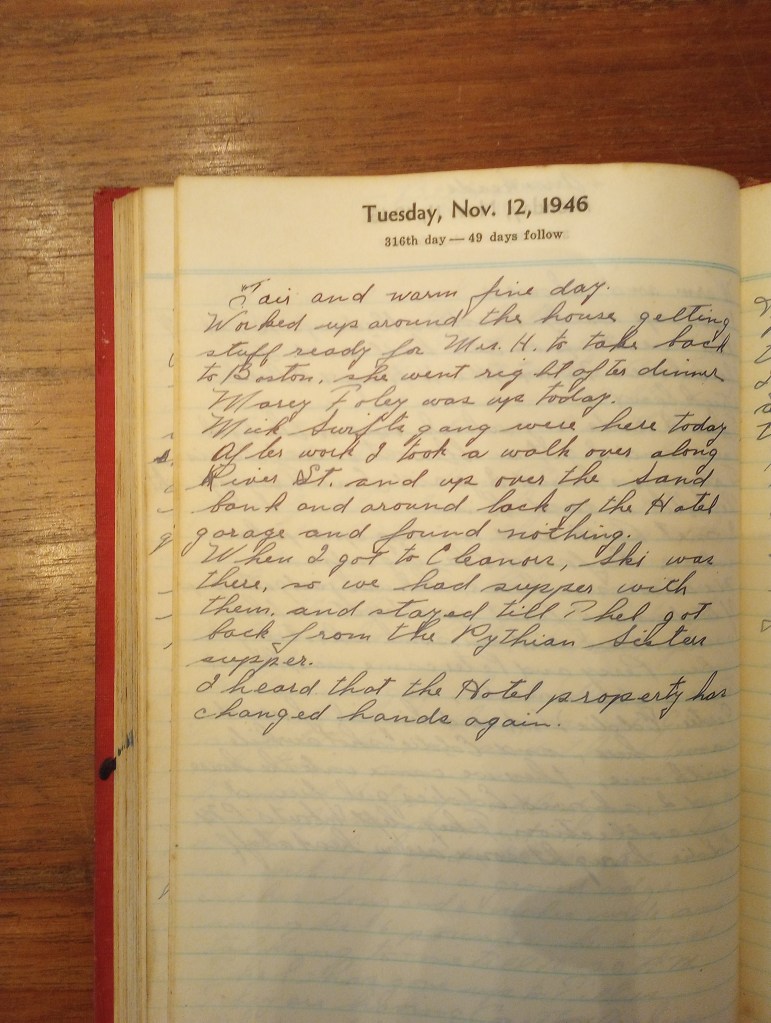 Tuesday, Nov. 12, 1946
316th day — 49 days follow
Fair and warm fine day.
Worked up around the house getting
stuff ready for Mrs. H. to take back
to Boston. she went right after dinner
Marcy Foley was up today.
Muck Swifts gang were here today
After work I took a walk over along
River St. and up over the Sand
bank and around back of the Hotel
garage and found nothing.
When I got to Eleanors, Ski was
there, so we had supper with
them. and stayed till Phel got
back from the Pythian Sisters
supper.
I heard that the Hotel property has
changed hands again.